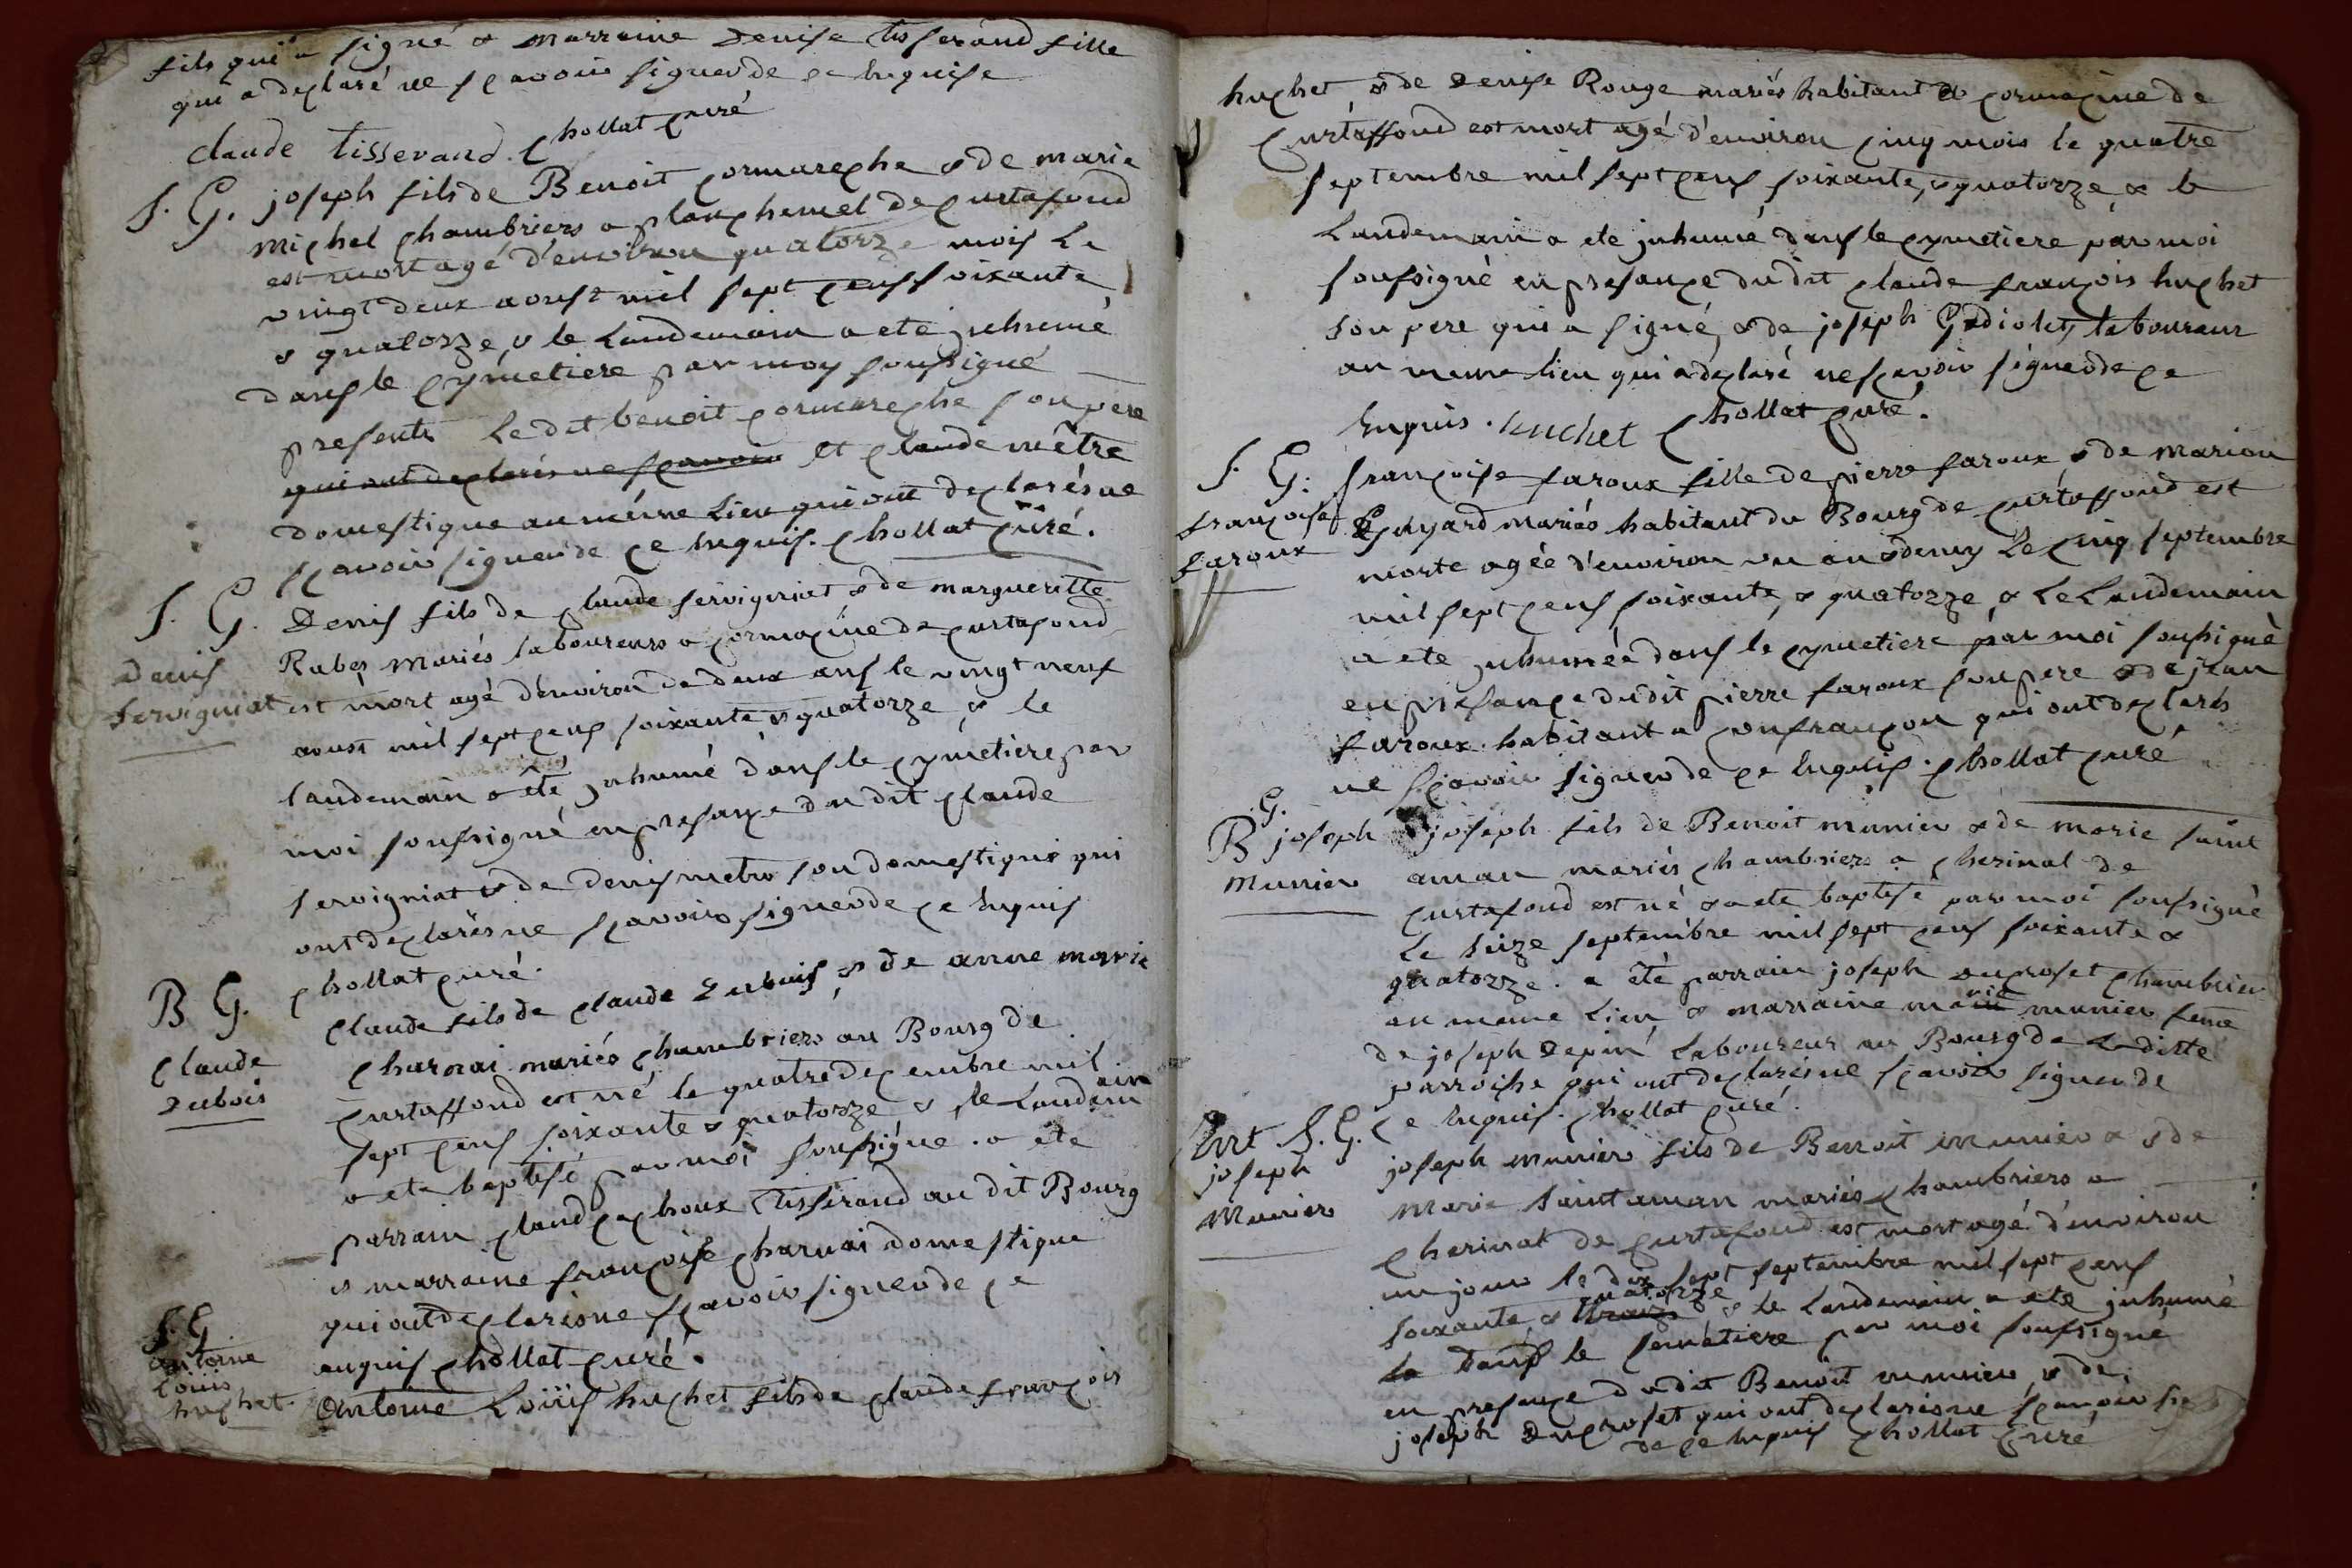 fils qui a signé & marraine Denise tisserand fille
qui a declaré ne scavoir signer de ce enquise
claude tisserand. Chollat curé
S. G. joseph fils de Benoit cormareche & de marie
michel chambriers a planchemel de curtafond
est mort agé d'environ quatorze mois le
vingt deux aoust mil sept cens soixante
& quatorze, & le landemain a eté inhumé
dans le cymetiere par moy soussigné
presents le dit benoit cormareche son pere
qui ont declarés ne scavoir et claude mêtre
domestique au même lieu qui ont declarés ne
scavoir signer de ce enquis. Chollat curé.
S. G. Denis fils de claude servigniat & de margueritte
Denis
Servigniat
Rabes mariés laboureurs a cormacine de curtafond
est mort agé d'environ de deux ans le vingt neuf
aoust mil sept cens soixante & quatorze, & le
landemain a été inhumé dans le cymetiere par
moi soussigné en presance du dit claude
servigniat & de denis metre son domestique qui
ont declarés ne scavoir signer de ce enquis
Chollat curé.
B G. claude fils de claude Dubois, & de anne marie
Claude
Dubois
Charnai mariés chambriers au Bourg de
Curtaffond est né le quatre decembre mil
sept cens soixante & quatorze & le landemain
a eté baptisé par moi soussigné. a eté
parrain claude choux tisserand au dit Bourg
& marraine françoise charnai domestique
qui ont declarés ne scavoir signer de ce
enquis Chollat curé.
S. G
antoine
Loüis
huchet.
antoine Loüis huchet fils de claude françois
huchet & de Denise Rouge mariés habitant a cormacine de
Curtaffond est mort agé d'environ cinq mois le quatre
septembre mil sept cens soixante, & quatorze, & le
Landemain a ete inhumé dans le cymetiere par moi
soussigné en presance du dit claude françois huchet
son pere qui a signé, & de joseph Gadiolet, laboureur
au meme lieu qui a declaré ne scavoir signer de ce
enquis. huchet Chollat curé.
S. G. françoise faroux fille de pierre faroux, & de marion
françoise
faroux
Guyard mariés habitant du Bourg de curtaffond est
morte agée d'environ un an & demy le cinq septembre
mil sept cens soixante, & quatorze, & le Landemain
a ete inhumée dans le cymetiere par moi soussigné
en presance dudit pierre faroux son pere & de jean
faroux habitant a confrançon qui ont declarés
ne scavoir signer de ce enquis. Chollat curé
G.
B joseph
Munier
joseph fils de Benoit munier & de marie saint
aman mariés chambriers a cherinal de
curtafond est né & a ete baptisé par moi soussigné
le seize septembre mil sept cens soixante &
quatorze. a été parrain joseph duproset chambrier
au meme Lieu & marraine marie munier feme
de joseph Depin laboureur au Bourg de La ditte
parroisse qui ont declarés ne scavoir signer de
ce enquis. Chollat curé.
Mort S. G.
joseph
Munier
joseph munier fils de Benoit munier & & de
marie saint aman mariés chambriers a
Cherinal de Curtafond est mort agé d'environ
un jour le dix sept septembre mil sept cens
soixante, & quatorze & le landemain a ete inhumé
la dans le cemetiere par moi soussigné
en presance du dit Benoit munier, & de
joseph Duproset qui ont declarés ne scavoir si
de ce enquis Chollat curé